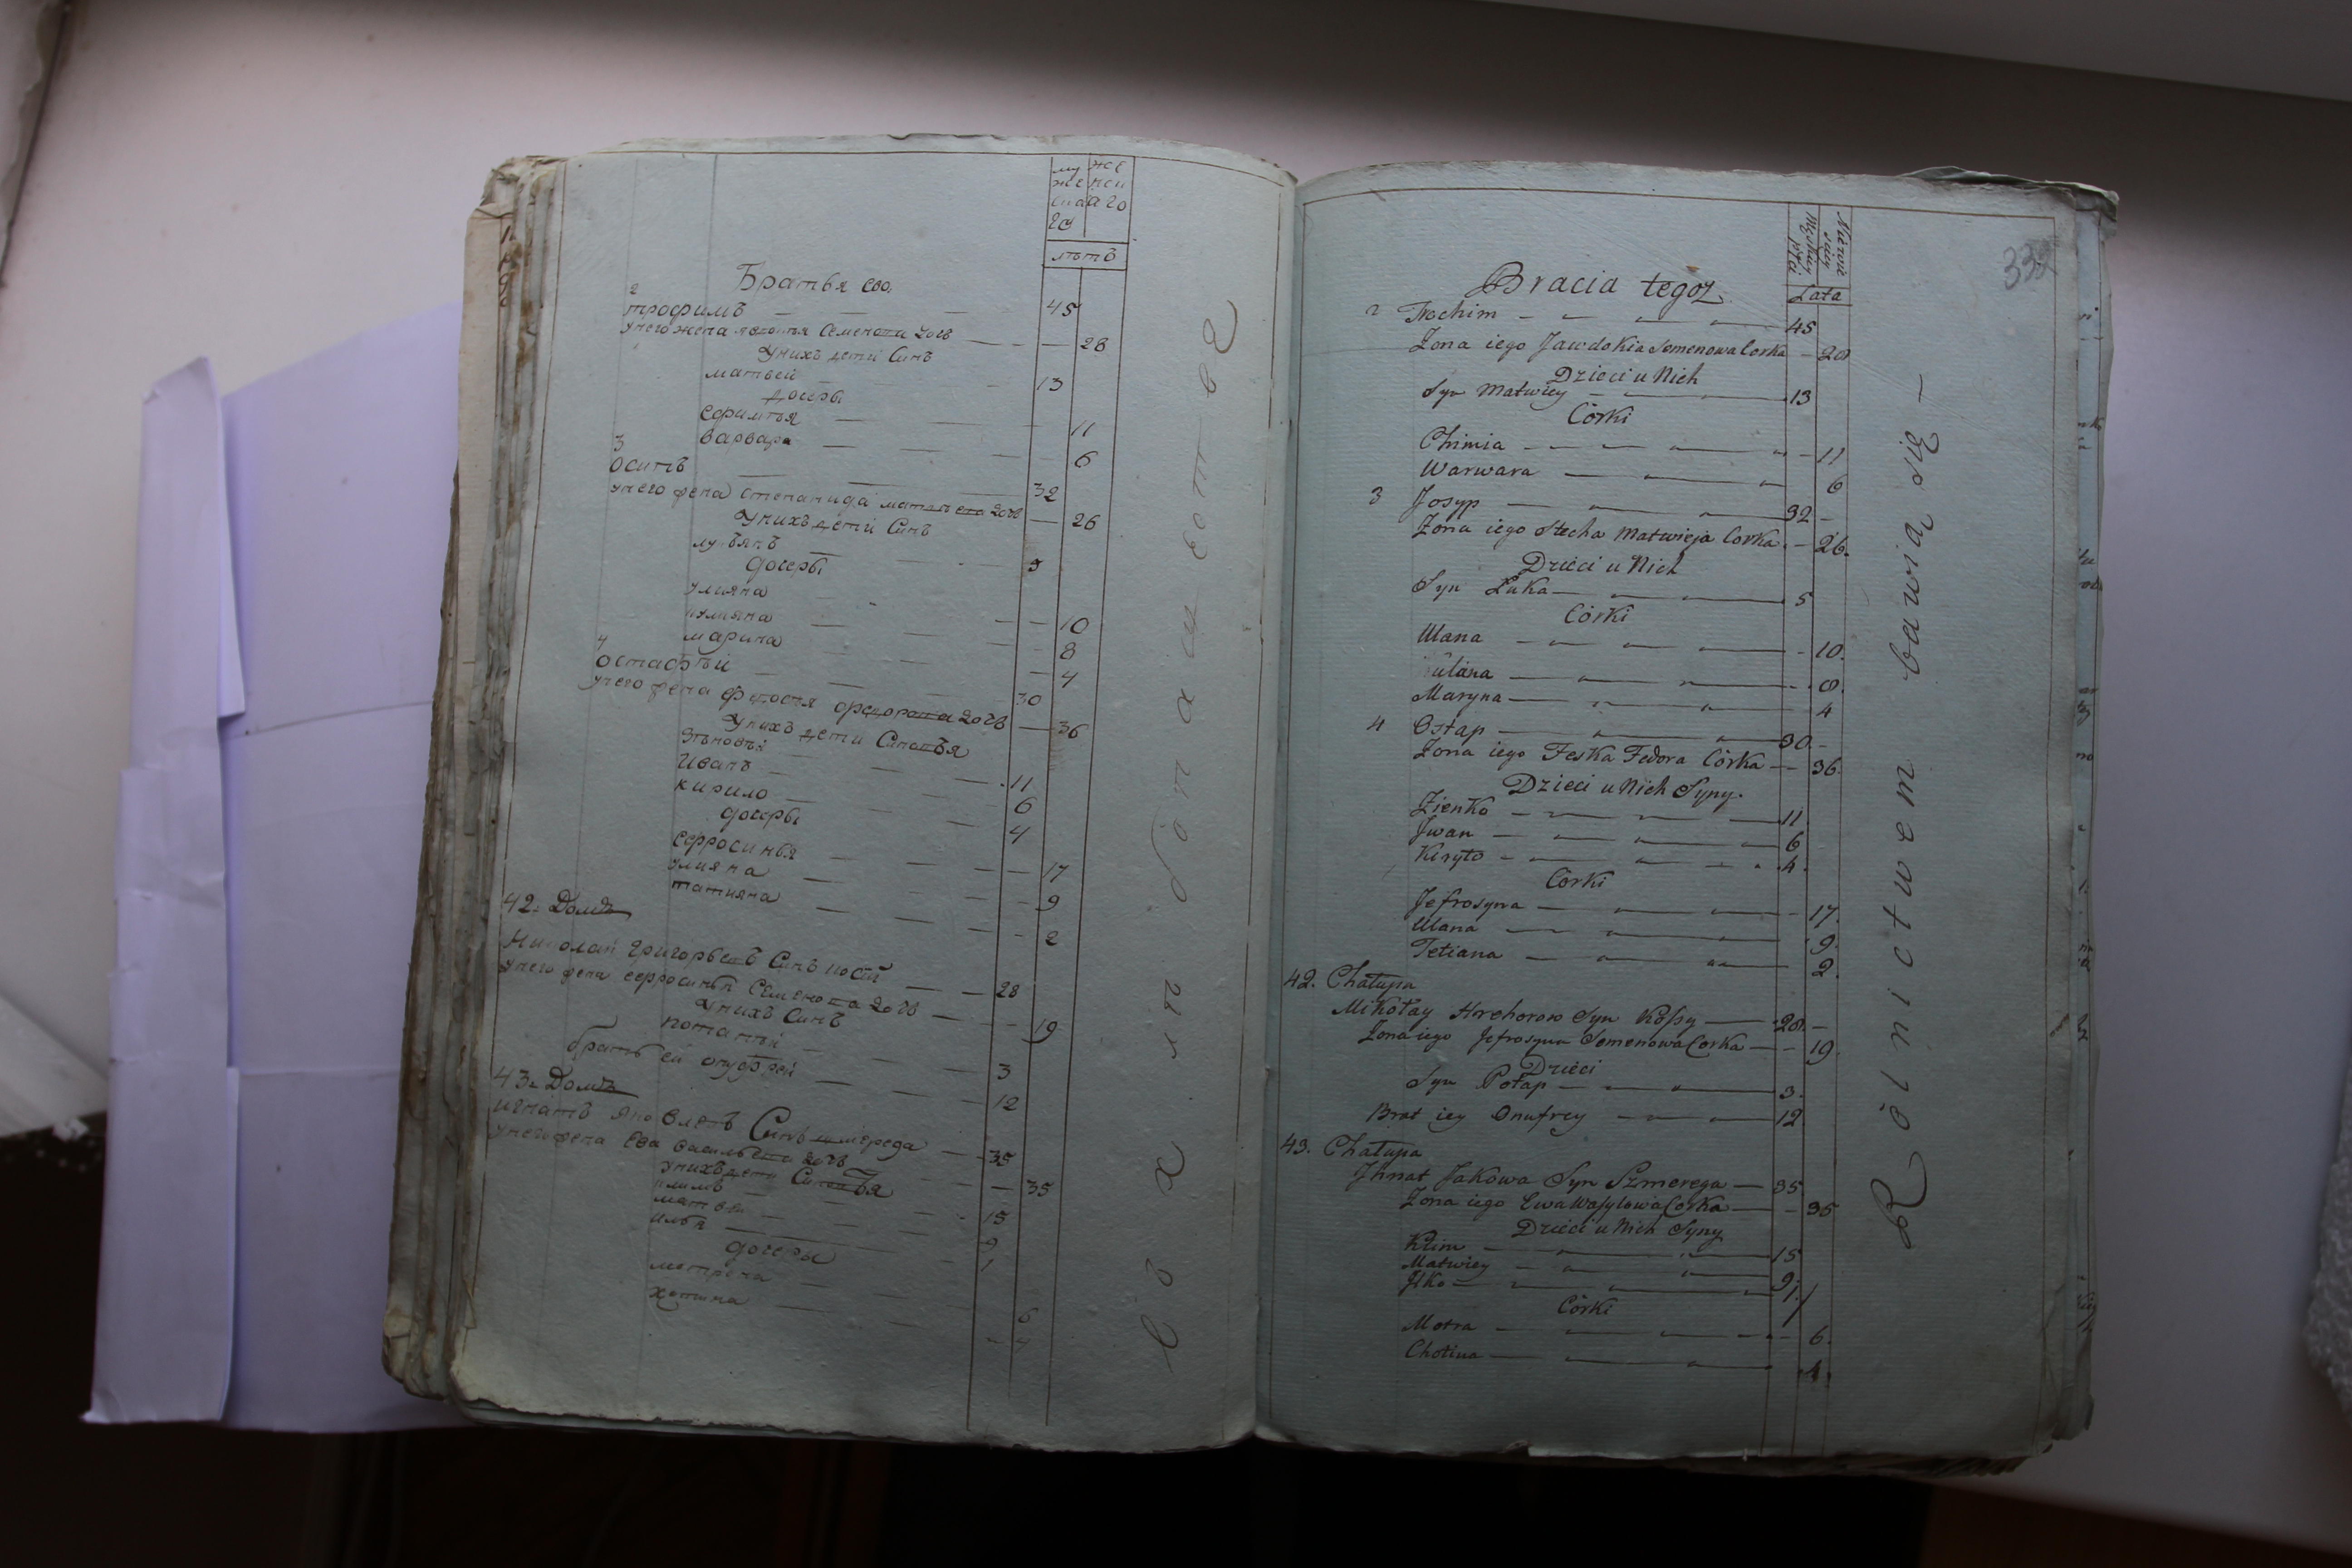 му же
же нск
ска аго
го
лѣтъ
Братья его.
2
трофимъ — 45
унего жена явдотья Семенова дочь — 28
Унихъ дети Синъ
матвей — 13
дочеры
Ефимья — 11
варвара — 6
3
осипъ — 32
унего жена степанида матвеева дочь — 26
Унихъ дети Синъ
лукьянъ — 5
дочеры
улияна — 10
кулияна — 8
марина — 4
4
остафѣй — 30
унего жена федосия федорова дочь — 36
Унихъ дети Синовья
Зѣновѣй — 11
Иванъ — 6
кирило — 4
дочеры
Ефросинья — 17
улияна — 9
татияна — 2
42. Домъ
Николай григорьевъ Синъ косый — 28
унего жена ефросинья Семенова дочь — 19
Унихъ Синъ
потапѣй — 3
братъ ей онуфрей — 12
43. Домъ
игнатъ яковлевъ Синъ шмерега — 35
унего жена Ева васильева дочь — 35
унихъ дети Синовья
климъ — 15
матвей — 9
илья — 1
дочеры
мотрена — 6
хотина — 4
въ хлѣбопашестве
339
Męskiey płci
Niewieściey
Lata
Bracia tegoż.
2 Trochim — 45
Żona iego Jawdokia Semenowa Corka — 28
Dzieci u Nich
Syn Matwiey — 13
Córki
Chimia — 11
Warwara — 6
3 Josyp — 32
Żona iego Stecha Matwieja Corka — 26.
Dzieci u Nich
Syn Łuka — 5
Córki
Ulana — 10.
Kulana — 8.
Maryna — 4
4 Ostap — 30.
Żona iego Feska Fedora Córka — 36.
Dzieci u Nich Syny.
Zienko — 11.
Jwan — 6
Kiryło — 4.
Córki
Jefrosyna — 17.
Ulana — 9.
Tetiana — 2.
42. Chałupa
Mikołay Hrehorow Syn Kossy — 28.
Żona iego Jefrosyna Semenowa Corka — 19.
Dzieci
Syn Potap — 3.
Brat iey Onufrey — 12
43. Chałupa
Jhnat Jakowa Syn Szmerega — 35
Żona iego Ewa Wasylowa Corka — 35
Dzieci u Nich Syny
Klim — 15
Matwiey — 9.
Jłko — 1.
Córki
Motra — 6.
Chotina — 4.
Rólnictwem bawią się —